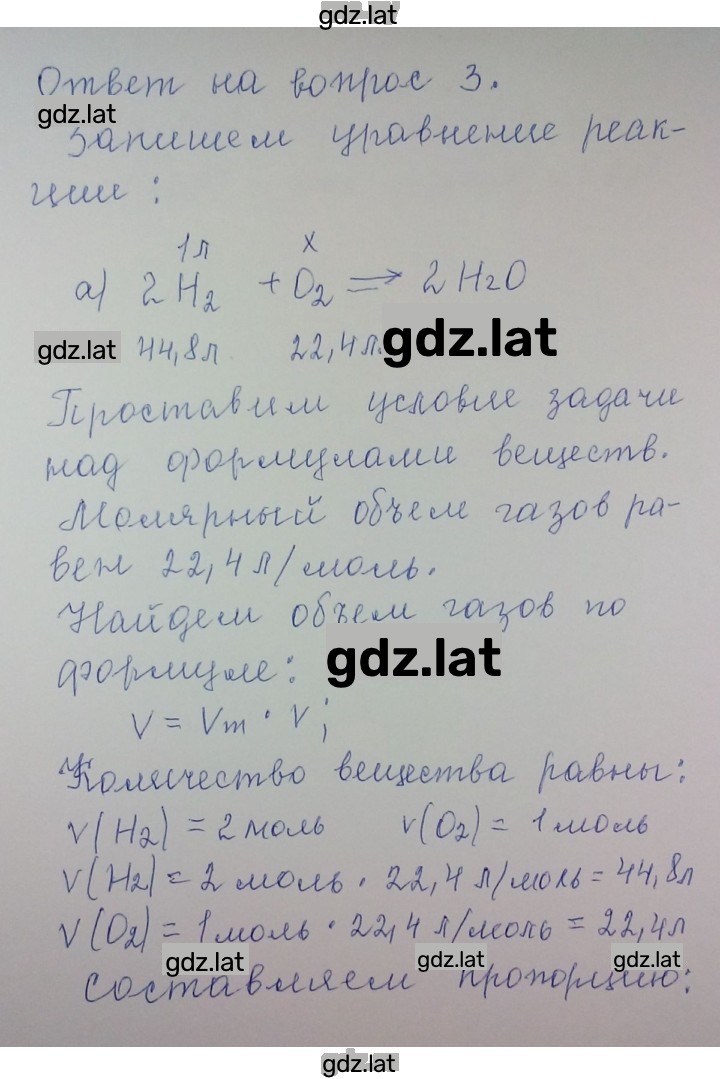 gdz.lat
Ответ на вопрос 3.
gdz.lat
Запишем уравнение реак-
ции:
1л x
а) 2H₂ + O₂ ⇒ 2H₂O
gdz.lat 44,8л 22,4л. gdz.lat
Проставим условие задачи
над формулами веществ.
Молярный объем газов ра-
вен 22,4 л/моль.
Найдем объем газов по
формуле: gdz.lat
V = Vm · ν;
Количество вещества равны:
ν(H₂) = 2 моль ν(O₂) = 1 моль
V(H₂) = 2 моль · 22,4 л/моль = 44,8л
V(O₂) = 1 моль · 22,4 л/моль = 22,4л
gdz.lat gdz.lat gdz.lat
Составляем пропорцию:
gdz.lat